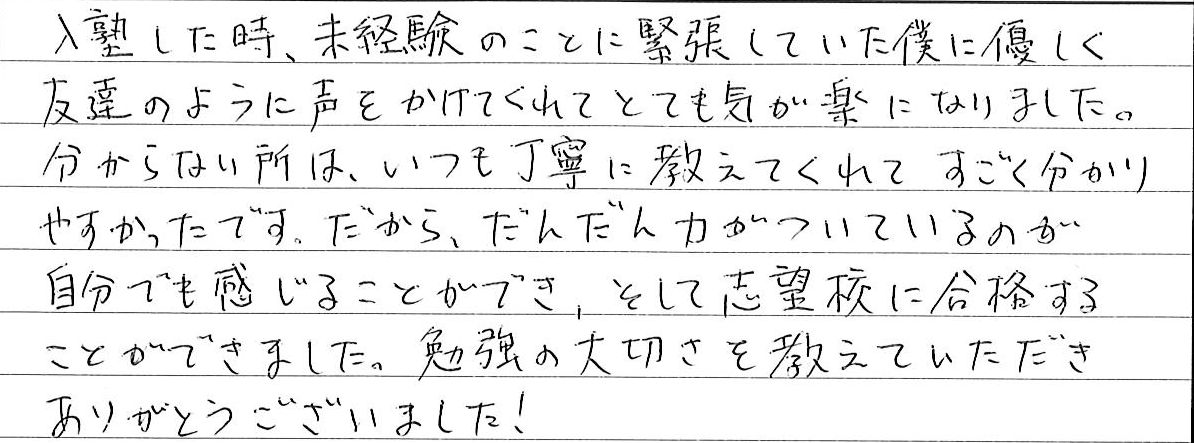 入塾した時、未経験のことに緊張していた僕に優しく
友達のように声をかけてくれてとても気が楽になりました。
分からない所は、いつも丁寧に教えてくれてすごく分かり
やすかったです。だから、だんだん力がついているのが
自分でも感じることができ,そして志望校に合格する
ことができました。勉強の大切さを教えていただき
ありがとうございました!